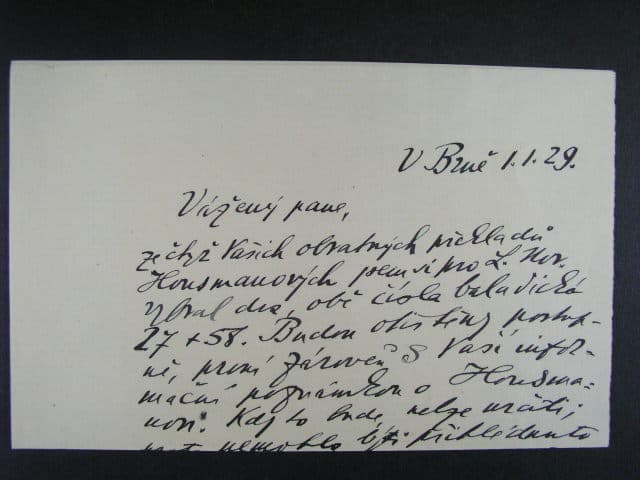 V Brně 1.1.29.
Vážený pane,
ze čtyř Vašich obratných překladů
Housmanových písní pro L. Nov.
vybral dva, obě čísla baladická
27 + 58. Budou otištěny postup-
ně, první zároveň s Vaší infor-
mační poznámkou o Housma-
novi. Kdy to bude, nelze určiti;
nemohlo býti přihlédnuto